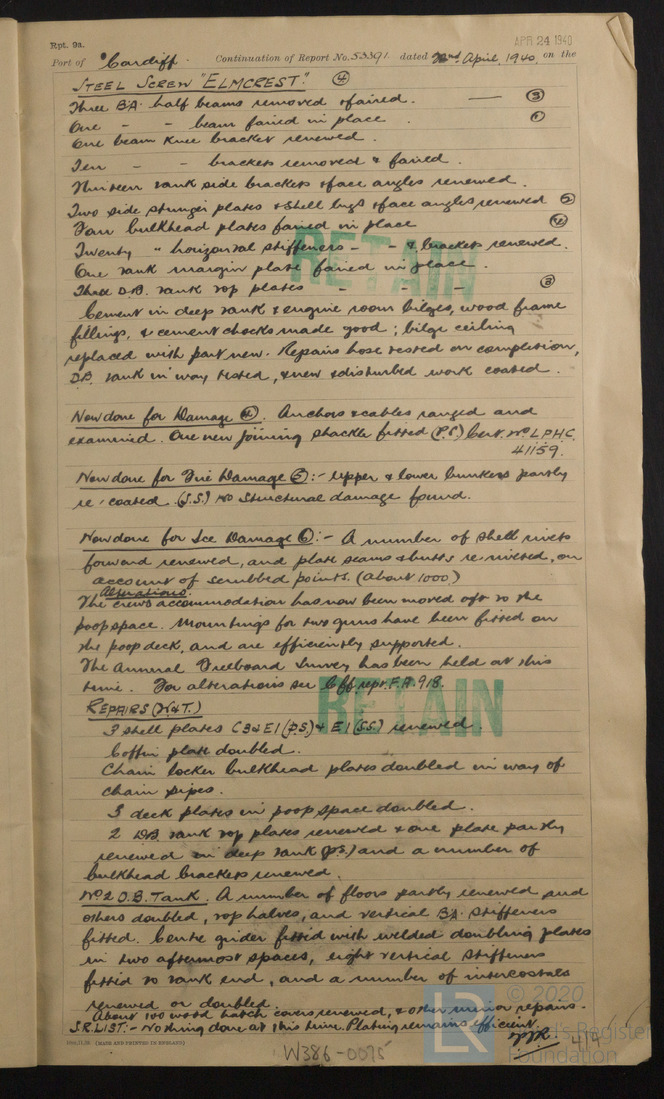 Rpt. 9a.
APR 24 1940
Port of Cardiff. Continuation of Report No. 53391 dated 22nd April, 1940, on the
STEEL SCREW "ELMCREST." ④
Three B.A. half beams removed & faired. — ③
One - - beam faired in place. ①
One beam knee bracket renewed.
Ten - - brackets removed & faired.
Thirteen tank side brackets & face angles renewed.
Two side stringer plates & shell lugs & face angles renewed ②
Four bulkhead plates faired in place ④
Twenty " horizontal stiffeners - - & brackets renewed.
One tank margin plate faired in place.
Three D.B. tank top plates - - - ③
Cement in deep tank & engine room bilges, wood frame
fillings, & cement chocks made good; bilge ceiling
replaced with part new. Repairs hose tested on completion,
D.B. tank in way tested, & new & disturbed work coated.
Now done for Damage ④. Anchors & cables ranged and
examined. One new joining shackle fitted (P.S.) Cert. No. L.P.H.C.
41159.
Now done for Fire Damage ⑤:- Upper & lower bunkers partly
re-coated. (S.S.) No structural damage found.
Now done for Ice Damage ⑥:- A number of shell rivets
forward renewed, and plate seams & butts re-riveted, on
account of scrubbed points. (about 1000)
Alterations.
The crews accommodation has now been moved aft to the
poop space. Mountings for two guns have been fitted on
the poop deck, and are efficiently supported.
The Annual Freeboard Survey has been held at this
time. For alterations see Cff rept. F.A. 918.
REPAIRS (W&T.)
3 shell plates C3 & E1 (P.S.) & E1 (S.S.) renewed
Coffin plate doubled.
Chain locker bulkhead plates doubled in way of
chain pipes.
3 deck plates in poop space doubled.
2 D.B. tank top plates renewed & one plate partly
renewed in deep tank (P.S.) and a number of
bulkhead brackets renewed.
No 2 D.B. Tank. A number of floors partly renewed and
others doubled, top halves, and vertical B.A. stiffeners
fitted. Centre girder fitted with welded doubling plates
in two aftermost spaces, eight vertical stiffeners
fitted to tank end, and a number of intercostals
renewed or doubled.
About 100 wood hatch covers renewed, & other minor repairs.
S.R. LIST:- Nothing done at this time. Plating remains efficient.
4/4
(MADE AND PRINTED IN ENGLAND)
W386-0075
RETAIN
RETAIN
LR
© 2020
Lloyd's Register
Foundation